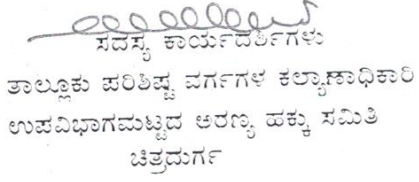 ಸದಸ್ಯ ಕಾರ್ಯದರ್ಶಿಗಳು
ತಾಲ್ಲೂಕು ಪರಿಶಿಷ್ಟ ವರ್ಗಗಳ ಕಲ್ಯಾಣಾಧಿಕಾರಿ
ಉಪವಿಭಾಗಮಟ್ಟದ ಅರಣ್ಯ ಹಕ್ಕು ಸಮಿತಿ
ಚಿತ್ರದುರ್ಗ